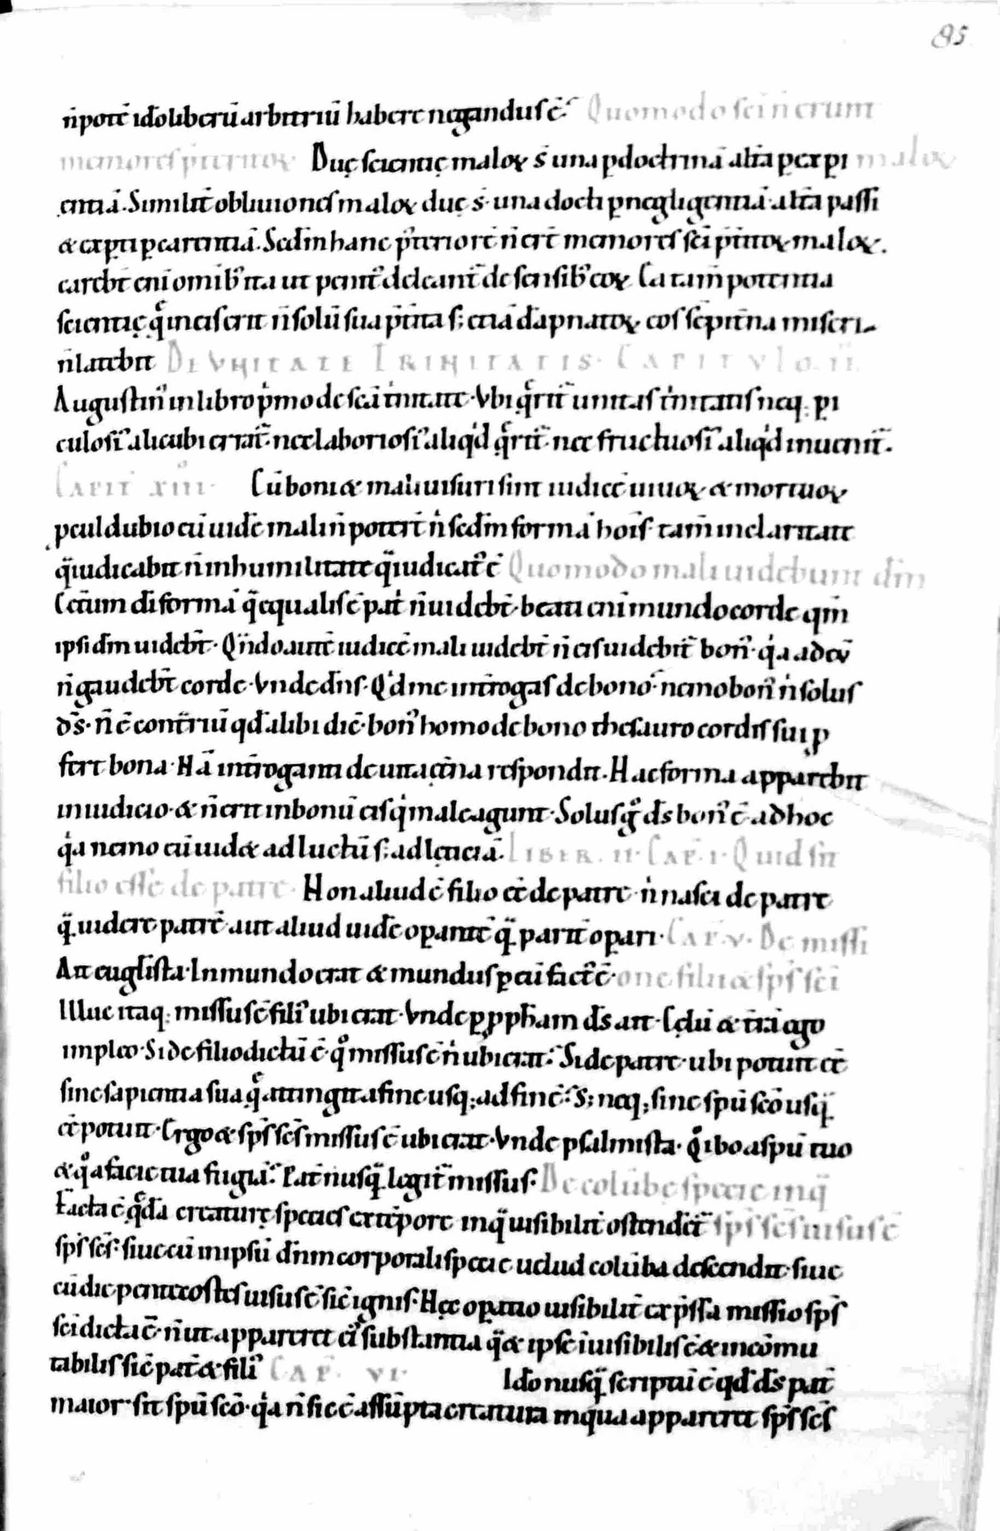 85
n̄ poте̄ iđo liberū arbitriū habere negandus ē. Quomodo sc̄i n̄ erunt
memores p̄teritoꝝ Duę scientię maloꝝ s̄ una ꝑ doctrinā alt̄a ꝑ exꝑi maloꝝ
entiā. Similit̄ obliuiones maloꝝ duę s̄ una docti ꝑ negligentiā alt̄a passi
& exꝑti ꝑ carentiā. Sed in hanc posteriorē n̄ er̄t memores sc̄i p̄tit̄oꝝ maloꝝ.
carebt̄ enī omīb; ita ut penit; deleant̄ de sensib; eoꝝ Ea tam̄ potentia
scientię q̄ in eis erit n̄ solū sua p̄t̄ita s; etiā dāpnatoꝝ eos sēpit̄na miseri
n̄ latebit DE VNITATE TRINITATIS. CAPITVLO. II.
Augustin; in libro p̄mo de sc̄a t̄nitate. Vbi q̄rit̄ unitas t̄nitatis neq; ꝑi
culosi; alicubi errat̄. nec laboriosi; aliqd̄ q̄rit̄ nec fructuosi; aliqd̄ inuenit̄.
CAPIT XIII. Cū boni & mali uisuri sint iudicē uiuoꝝ & mortuoꝝ
ꝓcul dubio eū uidē mali n̄ poter̄t n̄ sedm̄ formā hoīs. tam̄ in claritate
q̄ iudicabit n̄ in humilitate q̄ iudicat; ē Quomodo mali uidebunt dm̄
Cet̄um di formā q̄ equalis ē pat̄ n̄ uidebt̄. beati enī mundo corde qm̄
ipsi dm̄ uidebt̄. Qn̄do autē iudicē mali uidebt̄ n̄ eis uidebit̄ bon;. q̄a ad eū
n̄ gaudebt̄ corde. Vnde dn̄s. Qd̄ me int̄rogas de bono. nemo bon; n̄ solus
ds̄. n̄ ē contrariū qd̄ alibi dic̄. bon; homo de bono thesauro cordis sui ꝓ
fert bona. Hā int̄roganti de uita ęt̄na respondit. Hac forma apparebit
in iudicio. & n̄ erit in bonū eis q̄ male agunt. Solus g̊ ds̄ bon; ē ad hoc
q̄a nemo eū uid& ad luctū s; ad lęticiā. LIBER. II. CAP. I. Quid sit
filio esse de patre. Non aliud ē filio ēē de patre. n̄ nasci de patre
q̄ uidere patrē. aut aliud uidē oꝑantē q̄ parit̄ oꝑari. CAP. V. De missi
Ait euglista. In mundo erat & mundus ꝑ eū fact; ē. one filii & sp̄s sc̄i
Illuc itaq; missus ē fili; ubi erat. Vnde ꝑ ꝓph̄am ds̄ ait. Cęlū & t̄rā ego
impleo. Si de filio dictū ē q̊ missus ē n̄ ubi erat. Si de patre. ubi potuit ēē
sine sapientia sua q̄ attingit a fine usq; ad finē. S; neq; sine spū sc̄o usq̄
ēē potuit. Ergo & sp̄s sc̄s missus ē ubi erat. Vnde psalmista. q̊ ibo a spū tuo
& q̊ a facie tua fugiā. Pat̄ nusq̄ legit̄ missus. De colūbę specie inq̄
Facta ē q̄dā creaturę species ex tēpore inq̄ uisibilit̄ ostendēt̄ sp̄s sc̄s uisus ē
sp̄s sc̄s. siue cū in ipsū dn̄m corporali specie uelud colūba descendit. siue
cū die pentecostes uisus ē sic ignis. Hęc oꝑatio uisibilit̄ exp̄ssa missio sp̄s
sc̄i dicta ē. n̄ ut appareret ei; substantia q̄ & ipse īuisibilis ē & incōmu
tabilis sic pat̄ & fili; CAP. VI. Ido nusq̄ scriptū ē qd̄ ds̄ pat̄
maior sit spū sc̄o. q̄a n̄ sic ē assūpta creatura in qua appareret sp̄s sc̄s